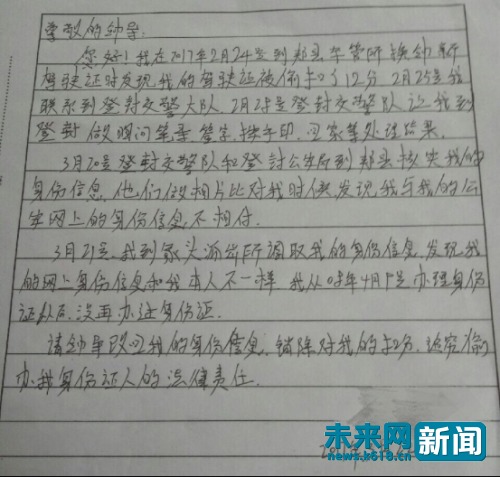 尊敬的领导:
您好!我在2017年2月24号到郏县车管所换领新
驾驶证时发现我的驾驶证被偷扣了12分 2月25号我
联系到登封交警大队 2月28号登封交警队让我到
登封做询问笔录、签字、按手印、回家等处理结果。
3月20号登封交警队和登封公安局到郏县核实我的
身份信息,他们做相片比对我时候发现我与我的公
安网上的身份信息不相付.
3月21号 我到冢头派出所调取我的身份信息 发现我
的网上身份信息和我本人不一样 我从05年4月1号办理身份
证以后,没再办过身份证.
请领导改回我的身份信息、销除对我的扣分,追究偷
办我身份证人的法律责任.
未来网 新闻
www.k618.cn